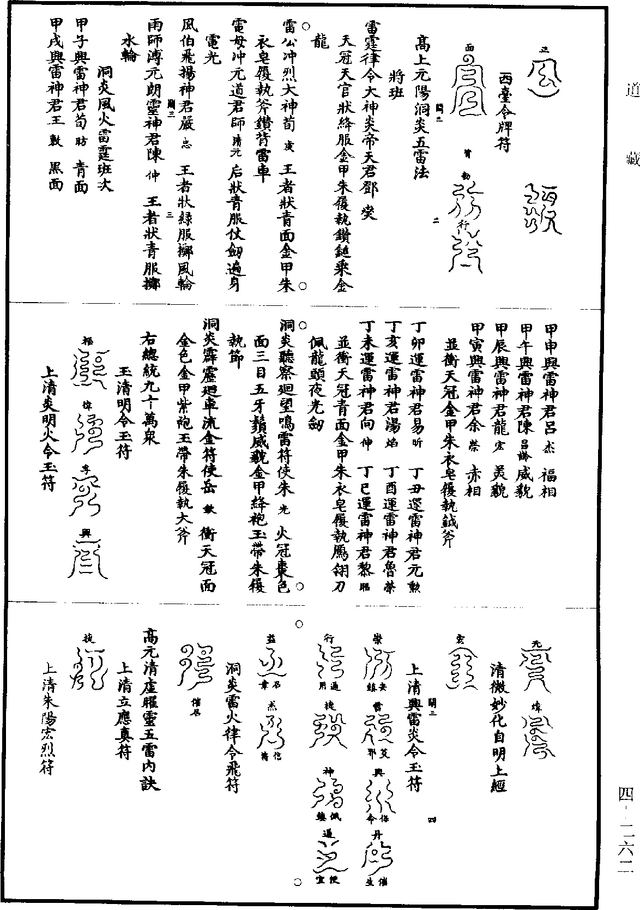 道藏
正
面
西臺令牌符
背
勅
行
高上元陽洞炎五雷法
將班
雷霆律令大神炎帝天君鄧 燮
天冠天官狀絳服金甲朱履執鑽鎚乘金
龍
雷公冲烈大神荀 王者狀青面金甲朱
衣皂履執斧鑽背雷車
電母冲元道君師 清元 后狀青服仗劒遍身
電光
風伯飛揚神君嚴 忠 王者狀綠服擲風輪
雨師溥元朗靈神君陳 仲 王者狀青服擲
水輪
洞炎風火雷霆班次
甲子興雷神君荀 青面
甲戌興雷神君王 黑面
甲申興雷神君呂 杰 福相
甲午興雷神君陳 威貌
甲辰興雷神君龍 宏 美貌
甲寅興雷神君余 崇 赤相
並衝天冠金甲朱衣皂履執鉞斧
丁卯運雷神君易 昕 丁丑運雷神君元 勲
丁亥運雷神君湯 焰 丁酉運雷神君魯 榮
丁未運雷神君向 仲 丁巳運雷神君黎 昭
並衝天冠青面金甲朱衣皂履執鴈翎刀
佩龍頭夜光劒
洞炎聽察廻望鳴雷符使朱 光 火冠棗色
面三目五牙鬚威貌金甲絳袍玉帶朱履
執節
洞炎霹靂廻車流金符使岳 衝天冠面
金色金甲紫袍玉帶朱履執大斧
右總統九十萬衆
玉清明令玉符
福
律
李
興
上清炎明火令玉符
元
煒
清微妙化自明上經
雲
上清興雷炎令玉符
崇
雷
興
丹
行
捷
神
通
益
杰
洞炎雷火律令飛符
高元清虛脽靈五雷内訣
上清立應真符
捷
上清朱陽宏烈符
四－二六二